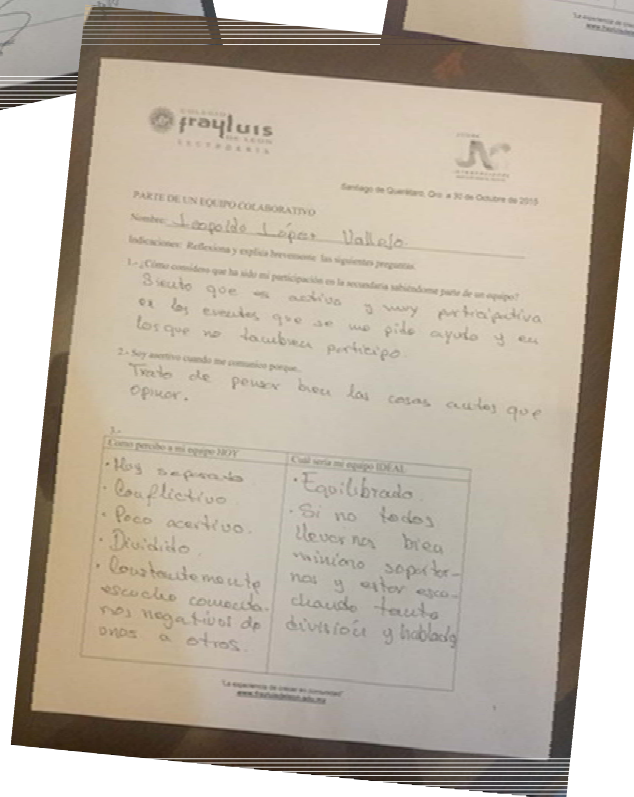 COLEGIO
frayluis
DE LEON
SECUNDARIA
Santiago de Querétaro, Qro. a 30 de Octubre de 2015
PARTE DE UN EQUIPO COLABORATIVO
Nombre: Leopoldo López Vallejo.
Indicaciones: Reflexiona y explica brevemente las siguientes preguntas.
1.- ¿Cómo considero que ha sido mi participación en la secundaria sabiéndome parte de un equipo?
Siento que es activa y muy participativa
en los eventos que se me pide ayuda y en
los que no tambien participo.
2.- Soy asertivo cuando me comunico porque..
Trato de pensar bien las cosas antes que
opinar.
3.-
Como percibo a mi equipo HOY
• Muy separado
• Conflictivo.
• Poco acertivo.
• Dividido.
• Constantemente
escucho comenta-
rios negativos de
unos a otros.
Cuál sería mi equipo IDEAL
• Equilibrado.
• Si no todos
llevarnos bien
minimo soportar-
nos y estar escu-
chando tanta
división y hablada
"La experiencia de crecer en comunidad"
www.frayluisdeleon.edu.mx